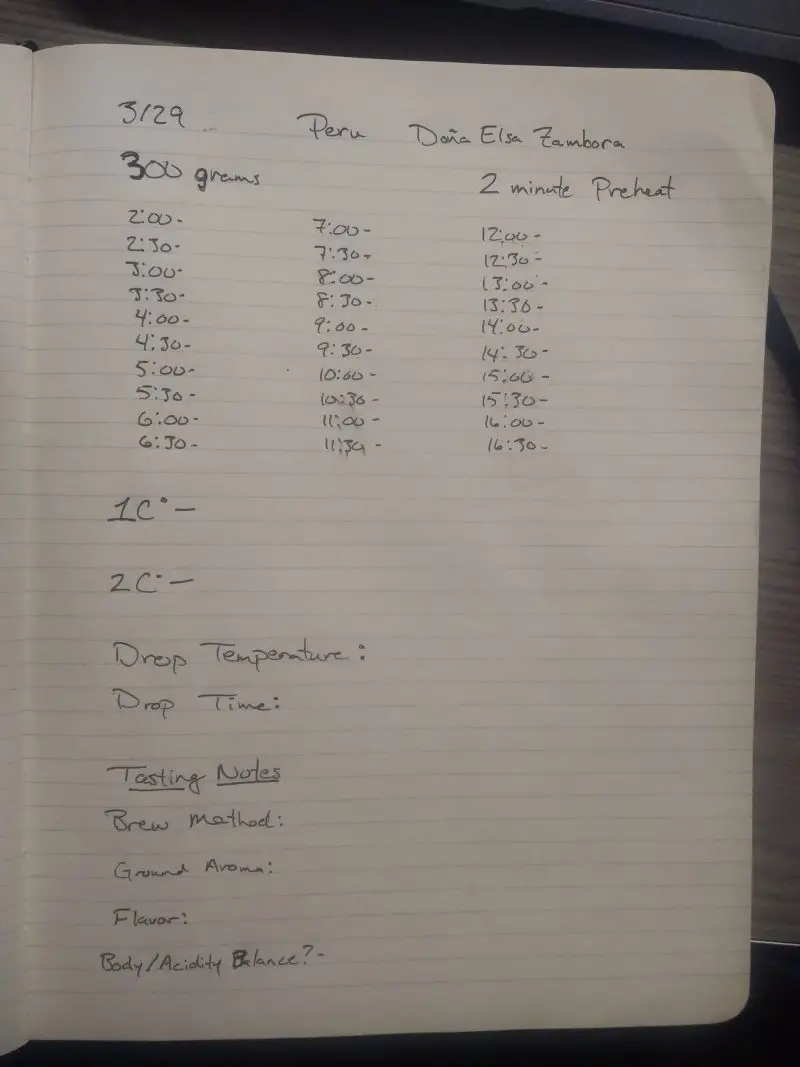 3/29 Peru Doña Elsa Zambora
300 grams 2 minute Preheat
2:00- 7:00- 12:00-
2:30- 7:30- 12:30-
3:00- 8:00- 13:00-
3:30- 8:30- 13:30-
4:00- 9:00- 14:00-
4:30- 9:30- 14:30-
5:00- 10:00- 15:00-
5:30- 10:30- 15:30-
6:00- 11:00- 16:00-
6:30- 11:30- 16:30-
1C°—
2C°—
Drop Temperature:
Drop Time:
Tasting Notes
Brew Method:
Ground Aroma:
Flavor:
Body/Acidity Balance?-